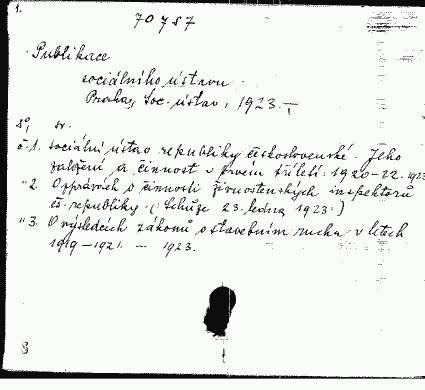 1.
70787
Publikace
sociálního ústavu
Praha, Soc. ústav, 1923 -
8°, sv.
č 1. Sociální ústav republiky československé. Jeho
založení a činnost v prvém tříletí 1920-22. 1923
" 2. O zprávách o činnosti živnostenských inspektorů
čs. republiky. (Schůze 23. ledna 1923.)
" 3. O výsledcích zákonů o stavebním ruchu v letech
1919-1921. - 1923.